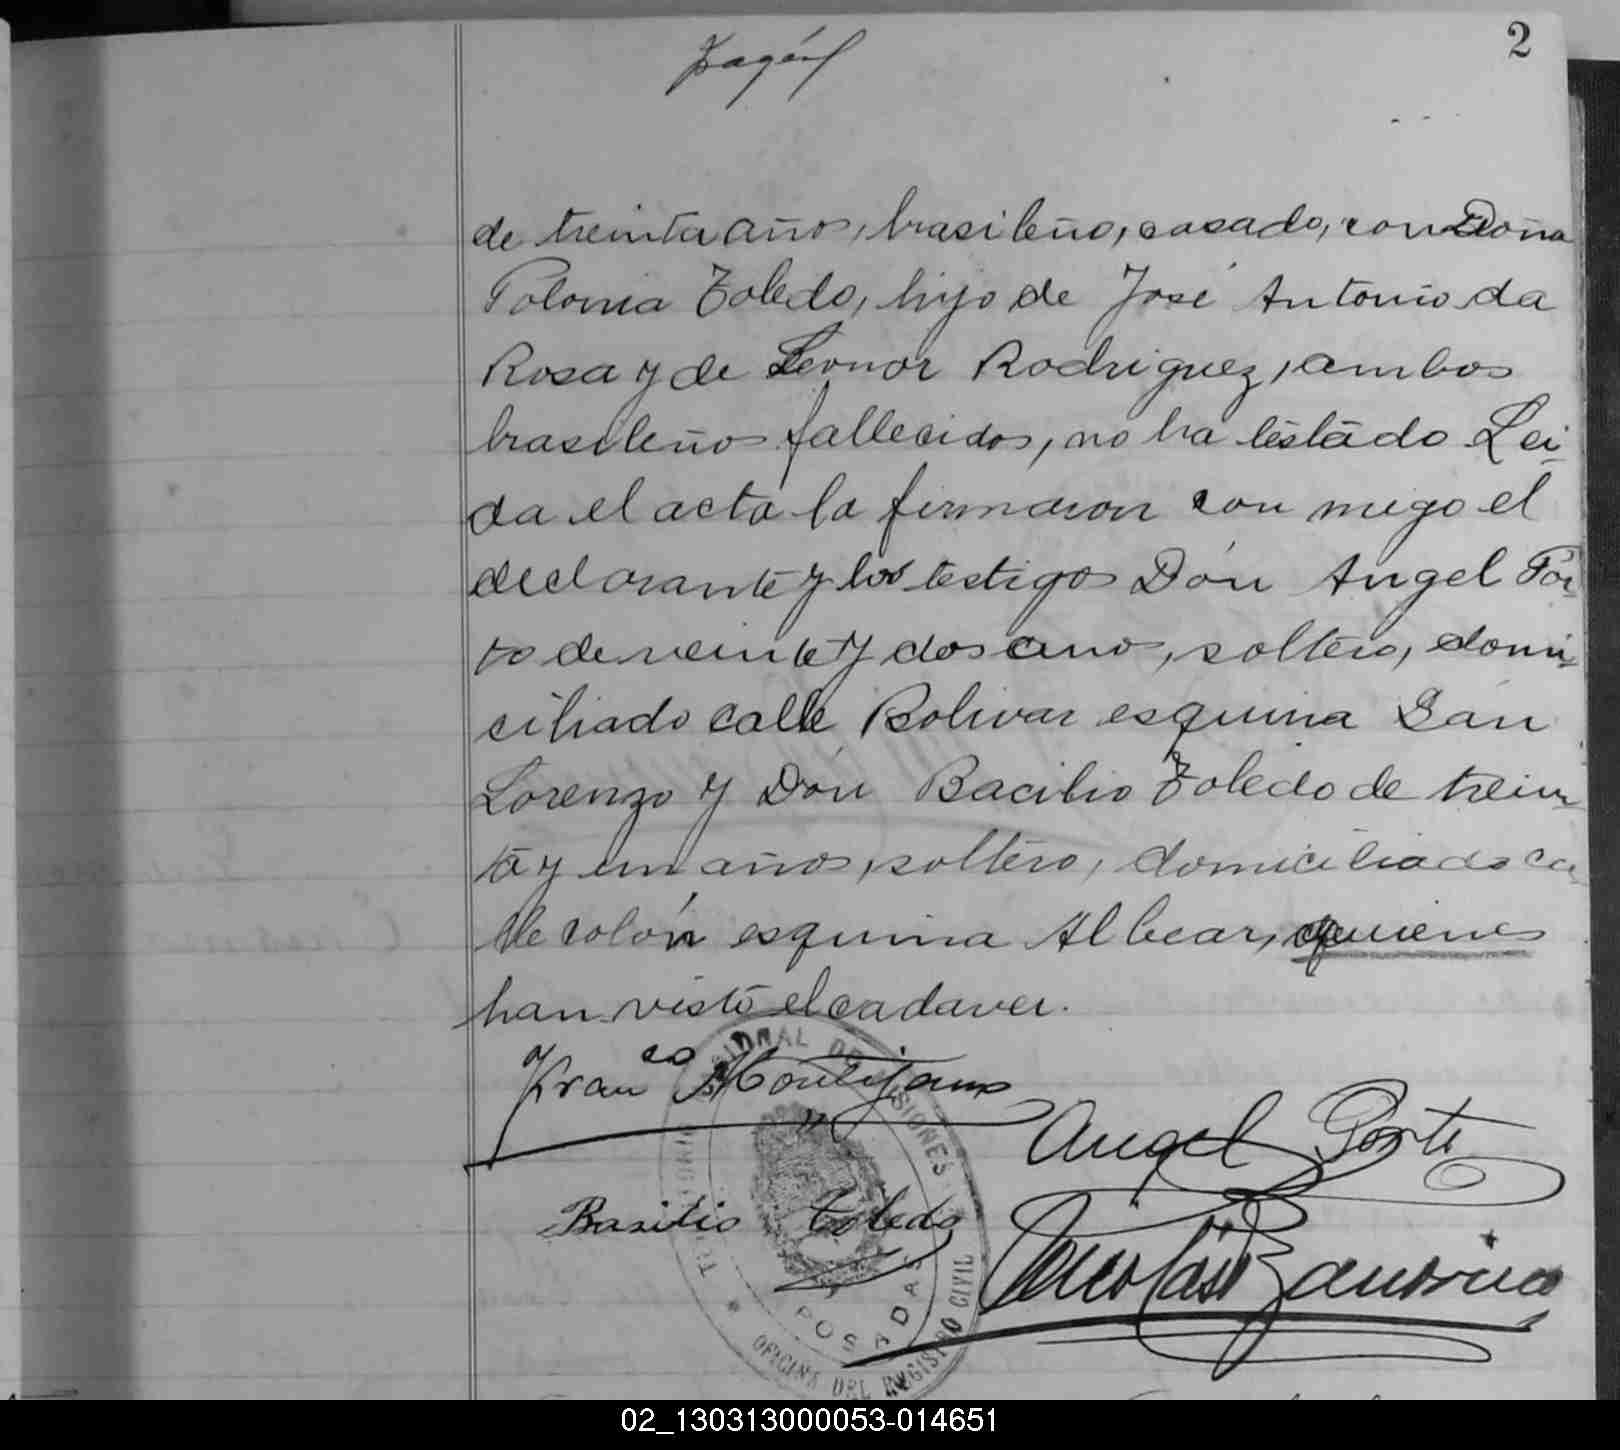 2
de treinta años, brasileño, casado, con Doña
Polonia Toledo, hijo de José Antonio da
Rosa y de Leonor Rodriguez, ambos
brasileños fallecidos, no ha testado Lei-
da el acta la firmaron con migo el
declarante y los testigos Dón Angel Por-
to de veinte y dos anos, soltero, domi-
ciliado calle Bolivar esquina San
Lorenzo y Dón Bacilio Toledo de trein-
ta y un años, soltero, domiciliado ca-
lle colón esquina Albear, quienes
han visto el cadaver.
Fran co
Angel Porto
Basilio Toledo
Nicolás
TERRITORIO NACIONAL DE MISIONES
POSADAS
OFICINA DEL REGISTRO CIVIL
02_130313000053-014651